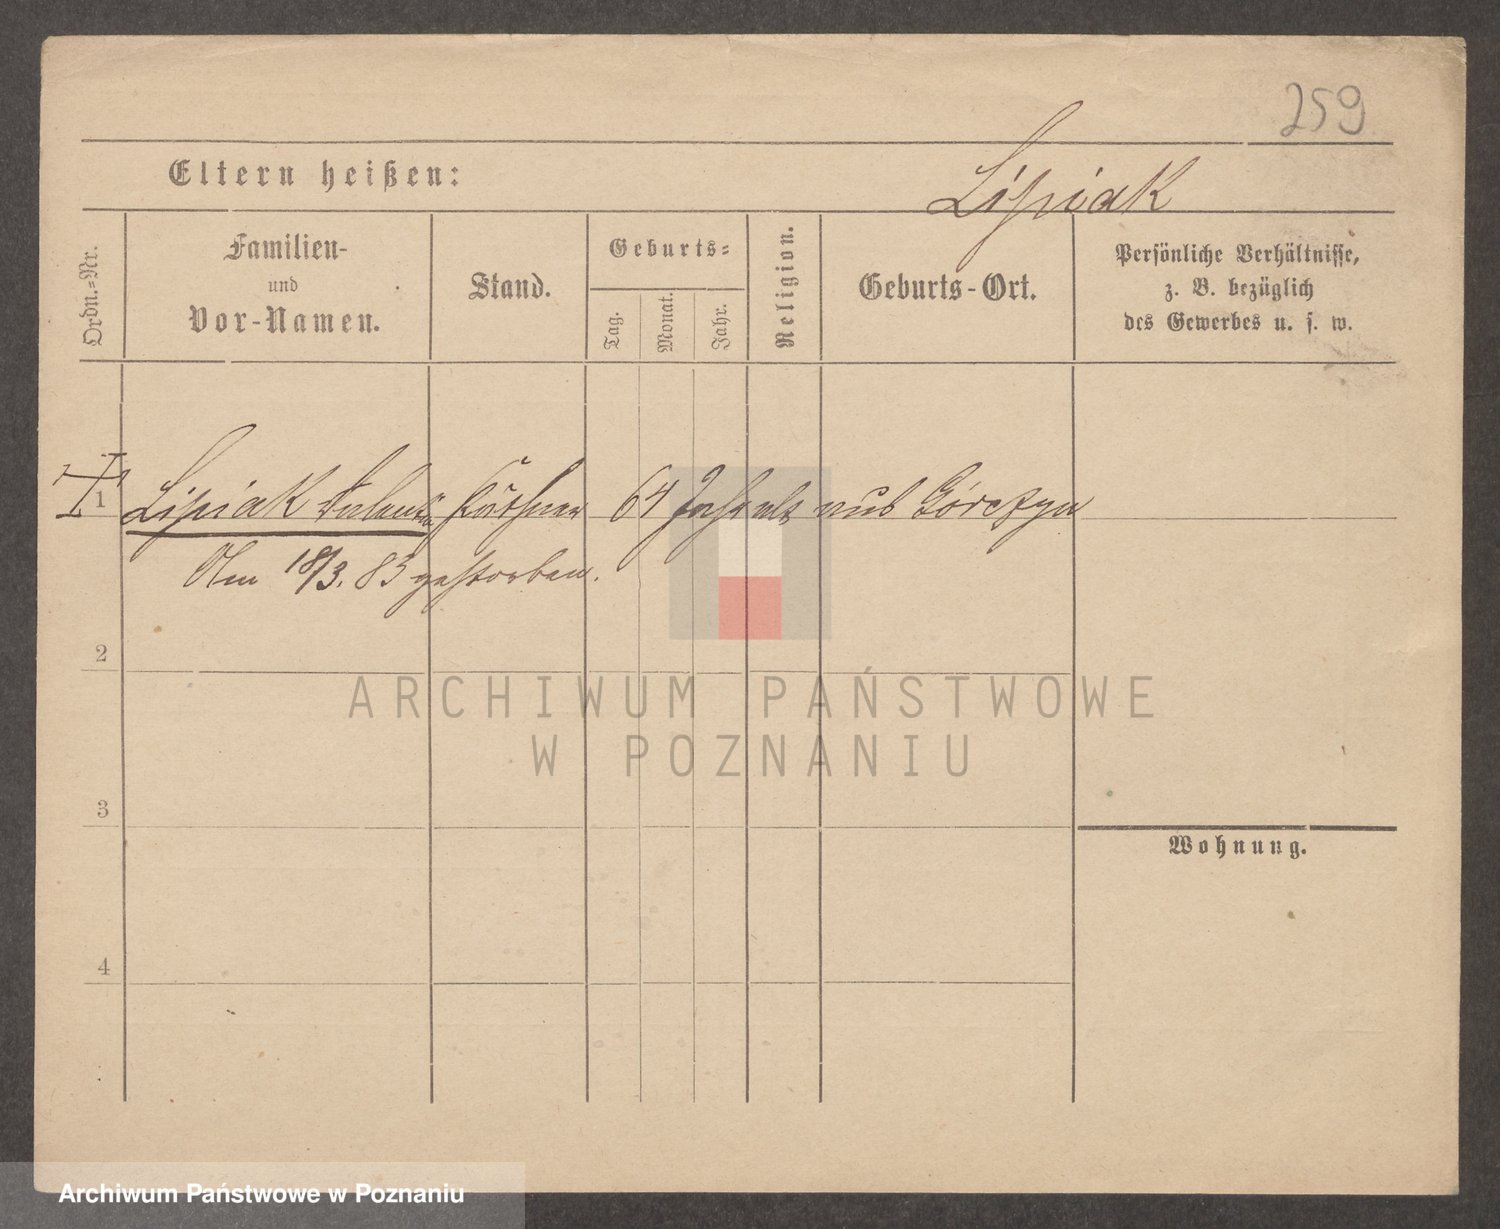 259
Eltern heißen:
Lipiak
Ordn.-Nr.
Familien-
und
Vor-Namen.
Stand.
Geburts-
Tag.
Monat.
Jahr.
Religion.
Geburts-Ort.
Persönliche Verhältnisse,
z. B. bezüglich
des Gewerbes u. s. w.
1 Lipiak Valentin Käthner 64 Jahr alt aus Górczyn
Am 18/3. 83 gestorben.
2
ARCHIWUM PAŃSTWOWE
W POZNANIU
3
Wohnung.
4
Archiwum Państwowe w Poznaniu